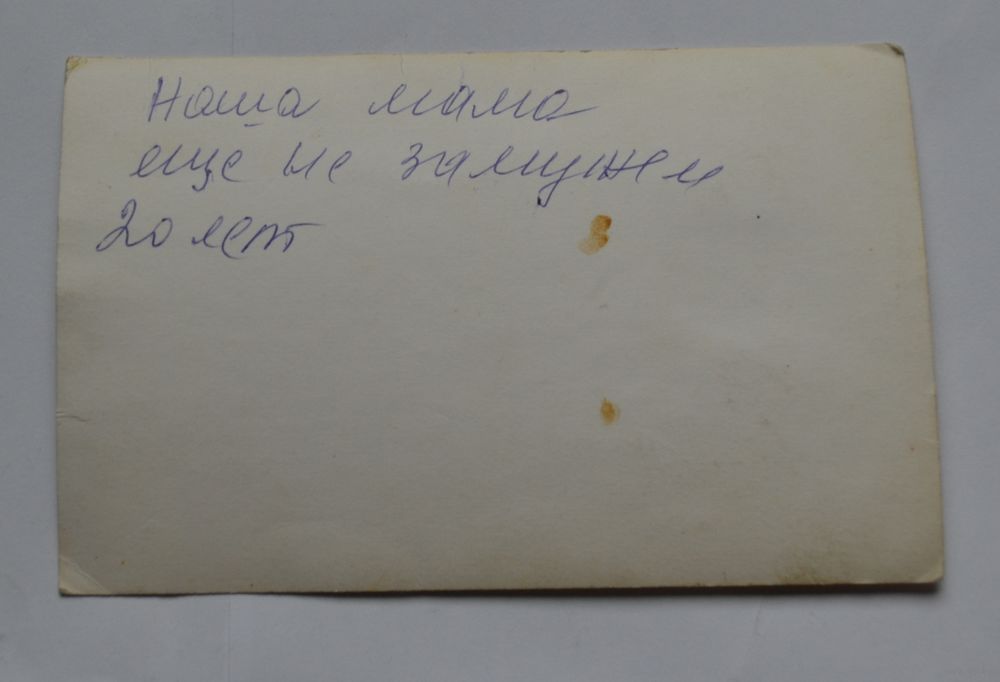 Наша мама
еще не замужем
20 лет